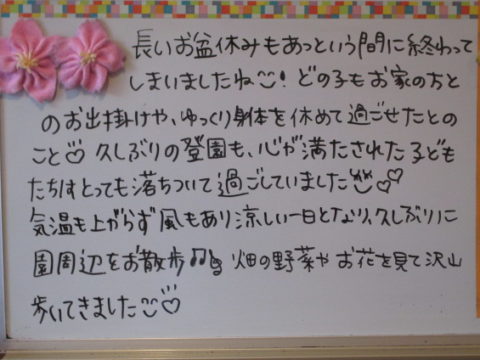 長いお盆休みもあっという間に終わって
しまいましたね!どの子もお家の方と
のお出掛けや、ゆっくり身体を休めて過ごせたとの
こと♡ 久しぶりの登園も、心が満たされた子ども
たちはとっても落ちついて過ごしていました♡
気温も上がらず風もあり涼しい一日となり、久しぶりに
園周辺をお散歩♪ 畑の野菜や お花を見て沢山
歩いてきました♡